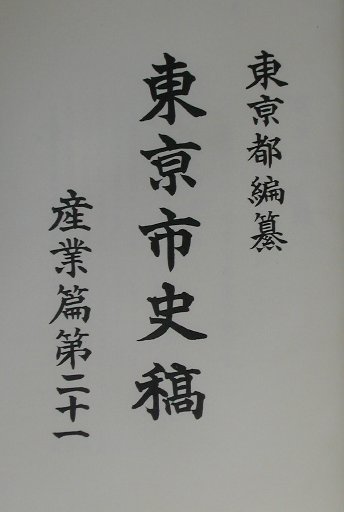 東京都編纂
東京市史稿
産業篇第二十一